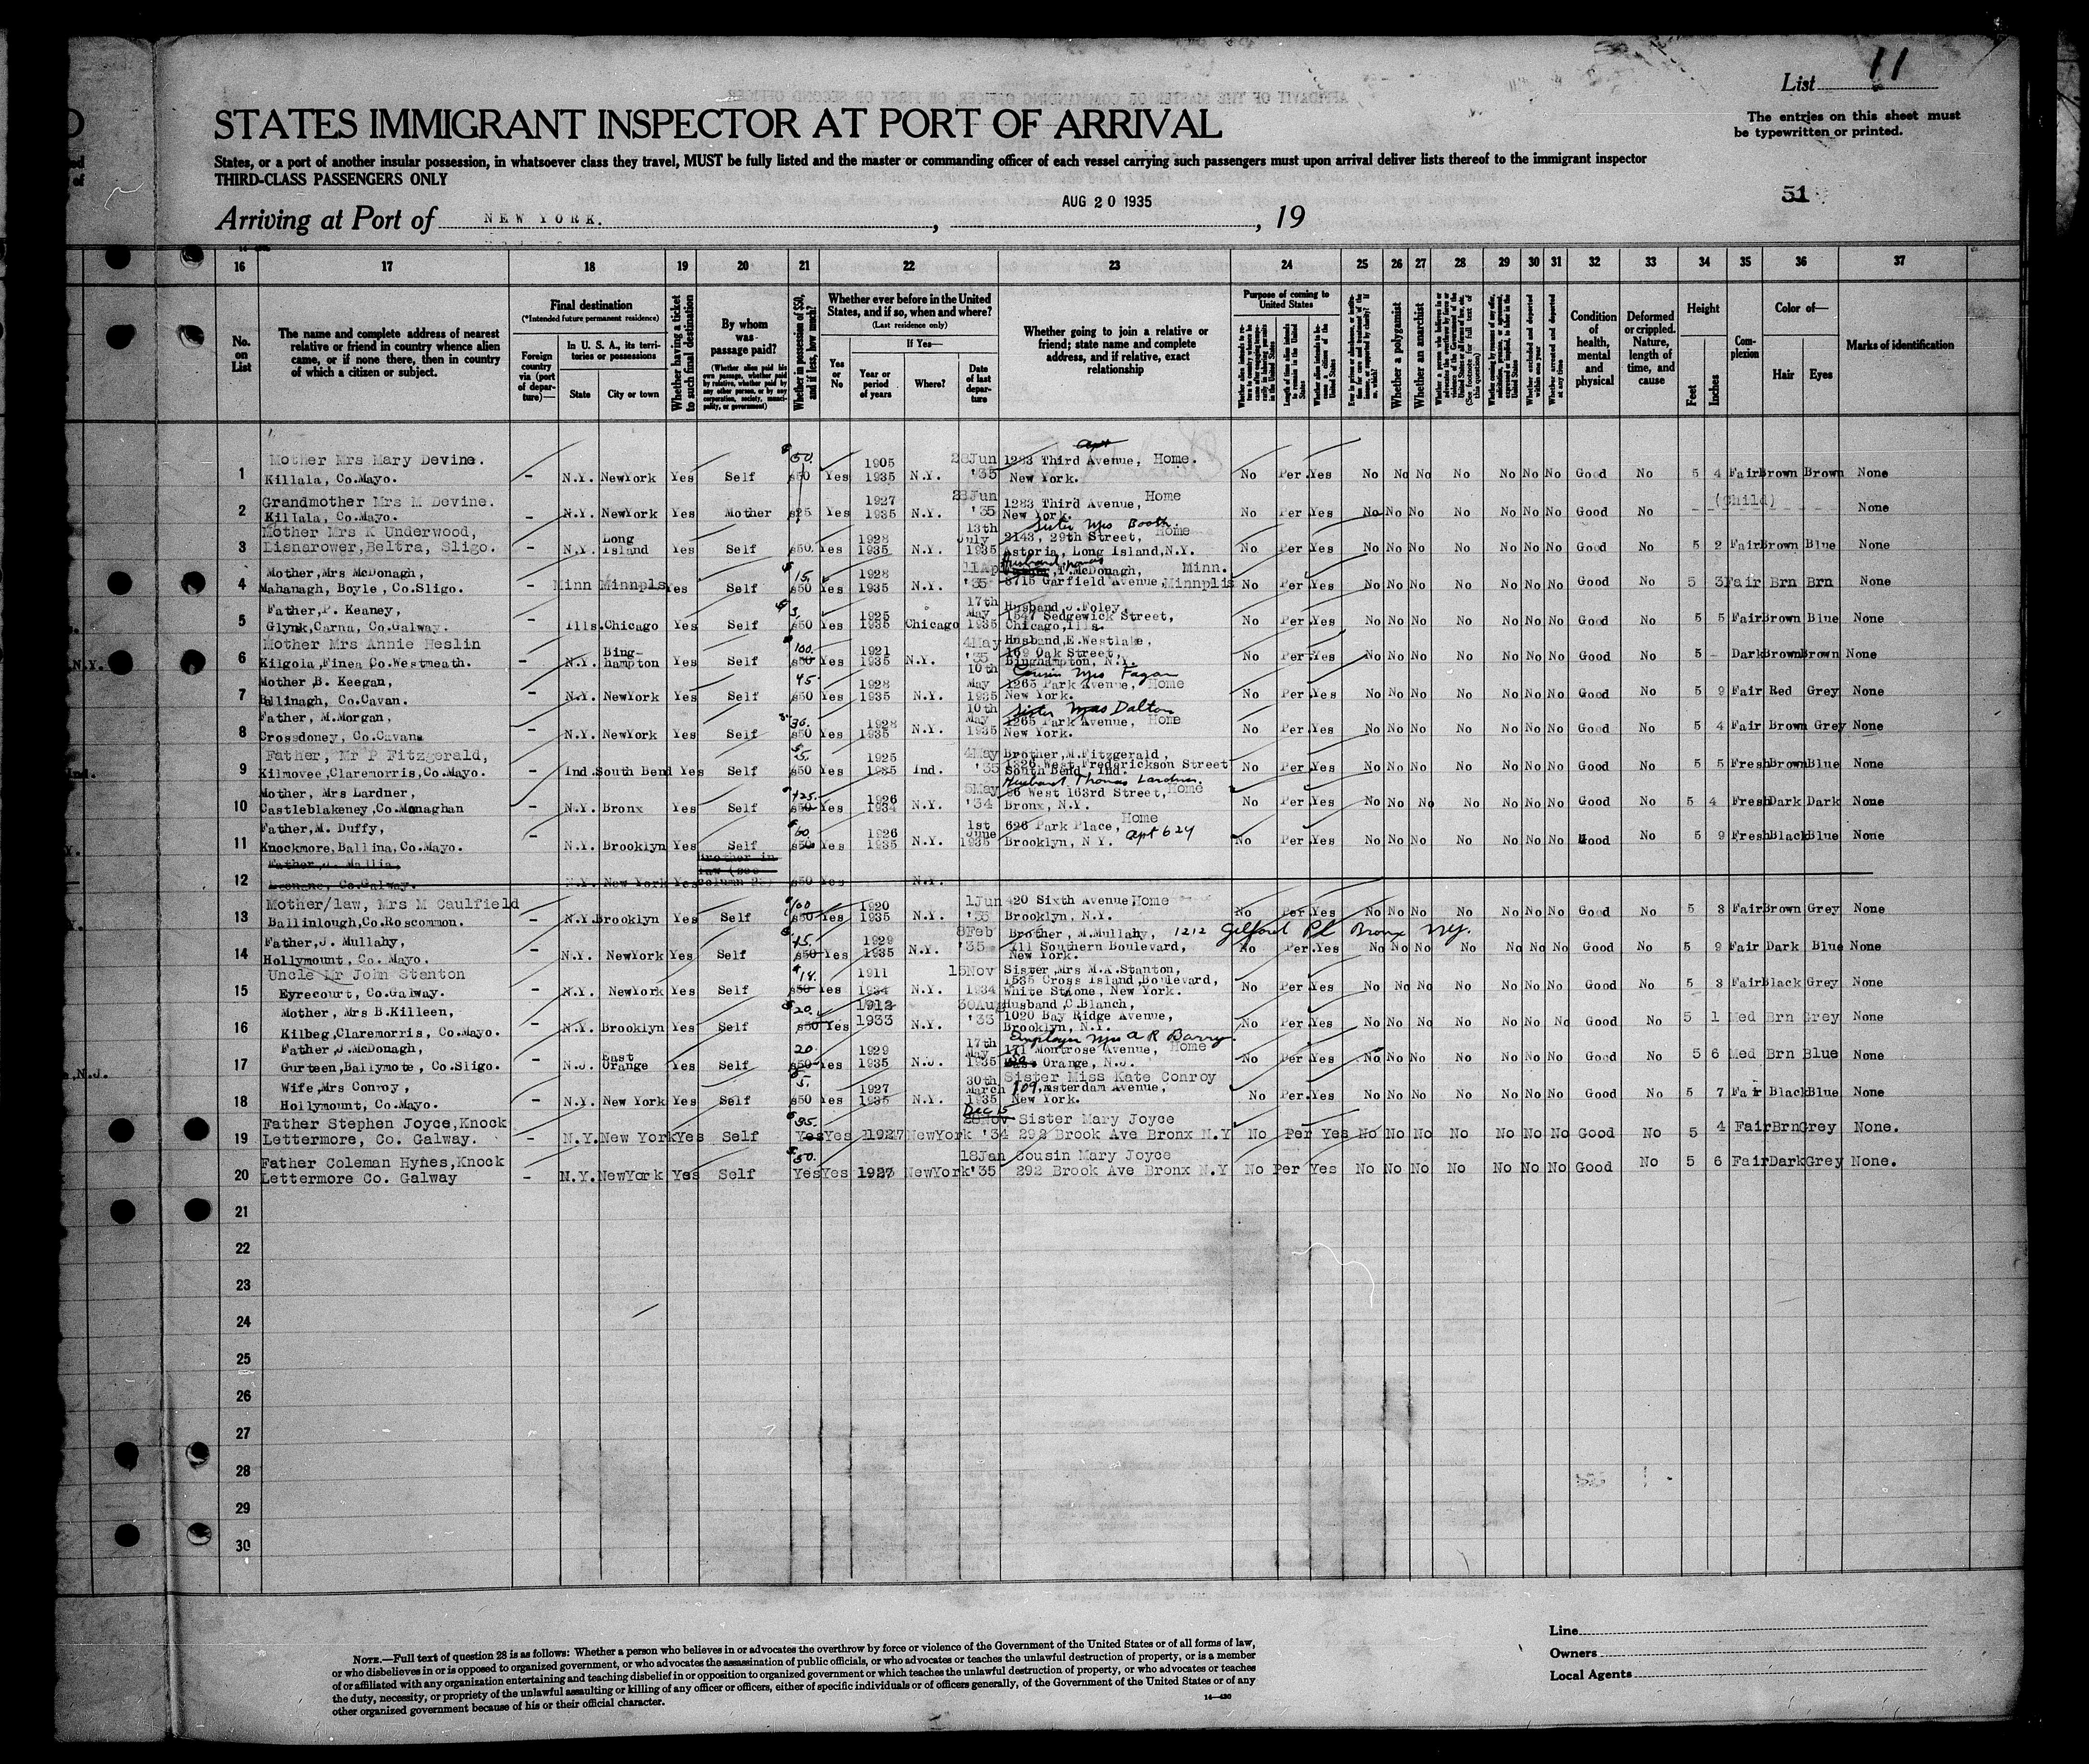 List 11
The entries on this sheet must
be typewritten or printed.
STATES IMMIGRANT INSPECTOR AT PORT OF ARRIVAL
States, or a port of another insular possession, in whatsoever class they travel, MUST be fully listed and the master or commanding officer of each vessel carrying such passengers must upon arrival deliver lists thereof to the immigrant inspector
THIRD-CLASS PASSENGERS ONLY
51
Arriving at Port of NEW YORK. , AUG 20 1935 , 19
16 17 18 19 20 21 22 23 24 25 26 27 28 29 30 31 32 33 34 35 36 37
No. on List
The name and complete address of nearest relative or friend in country whence alien came, or if none there, then in country of which a citizen or subject.
Final destination
(*Intended future permanent residence)
Foreign country via (port of departure)—
In U. S. A., its territories or possessions
State City or town
Whether having a ticket to such final destination
By whom was passage paid?
(Whether alien paid his own passage, whether paid by relative, whether paid by any other person, or by any corporation, society, municipality, or government)
Whether in possession of $50, and if less, how much?
Whether ever before in the United States, and if so, when and where?
(Last residence only)
Yes or No
If Yes—
Year or period of years
Where?
Date of last departure
Whether going to join a relative or friend; state name and complete address, and if relative, exact relationship
Purpose of coming to United States
Length of time alien intends to remain in the United States
Whether a polygamist
Whether an anarchist
Condition of health, mental and physical
Deformed or crippled. Nature, length of time, and cause
Height
Feet Inches
Complexion
Color of—
Hair Eyes
Marks of identification
1 Mother Mrs Mary Devine. Killala, Co.Mayo. – N.Y. NewYork Yes Self 50. $50 Yes 1905 1935 N.Y. 28Jun '35 1283 Third Avenue, Home. New York. No Per.Yes No No No No No No No Good No 5 4 Fair Brown Brown None
2 Grandmother Mrs M Devine. Killala, Co.Mayo. – N.Y. NewYork Yes Mother $25 Yes 1927 1935 N.Y. 28Jun '35 1283 Third Avenue, Home New York. No Per Yes No No No No No No No Good No (Child) None
3 Mother Mrs K Underwood, Lisnarower,Beltra, Sligo. – N.Y. Long Island Yes Self $50 Yes 1928 1935 N.Y. 13th July 1935 Sister Mrs Booth. 2143, 29th Street, Home Astoria, Long Island,N.Y. No Per Yes No No No No No No No Good No 5 2 Fair Brown Blue None
4 Mother,Mrs McDonagh, Mahanagh, Boyle, Co.Sligo. – Minn Minnpls Yes Self 15. $50 Yes 1928 1935 N.Y. 11Ap '35 Husband Thomas T.McDonagh, Minn. 3715 Garfield Avenue,Minnplis No Per Yes No No No No No No No Good No 5 3 Fair Brn Brn None
5 Father,P. Keaney, Glynk,Carna, Co.Galway. – Ills. Chicago Yes Self 3. $50 Yes 1925 1935 Chicago 17th May 1935 Husband J.Foley, 1547 Sedgewick Street, Chicago,Ills. No Per.Yes No No No No No No No Good No 5 5 Fair Brown Blue None
6 Mother Mrs Annie Heslin Kilgola,Finea Co.Westmeath. – N.Y. Binghampton Yes Self 100. $50 Yes 1921 1935 N.Y. 4May '35 Husband,E.Westlake, 169 Oak Street, Binghampton, N.Y. No Per.Yes No No No No No No No Good No 5 – Dark Brown Brown None
7 Mother B. Keegan, Bllinagh, Co.Cavan. – N.Y. NewYork Yes Self 45 $50 Yes 1928 1935 N.Y. 10th May 1935 Cousin Mrs Fagan 1265 Park Avenue, Home New York. No Per Yes No No No No No No No Good No 5 9 Fair Red Grey None
8 Father, M.Morgan, Crossdoney, Co.Cavan. – N.Y. NewYork Yes Self 36. $50 Yes 1928 1935 N.Y. 10th May 1935 Sister Mrs Dalton 1265 Park Avenue, Home New York. No Per Yes No No No No No No No Good No 5 4 Fair Brown Grey None
9 Father, Mr P Fitzgerald, Kilmovee,Claremorris,Co.Mayo. – Ind. South Bend Yes Self 5. $50 Yes 1925 1935 Ind. 4May '35 Brother,M.Fitzgerald, 1326 West Frederickson Street South Bend, Ind. No Per Yes No No No No No No No Good No 5 5 Fresh Brown Blue None
10 Mother, Mrs Lardner, Castleblakeney,Co.Monaghan – N.Y. Bronx Yes Self $50 Yes 1926 1934 N.Y. 5May '34 Husband Thomas Lardner. 96 West 163rd Street,Home Bronx, N.Y. No Per Yes No No No No No No No Good No 5 4 Fresh Dark Dark None
11 Father,M. Duffy, Knockmore,Ballina,Co.Mayo. – N.Y. Brooklyn Yes Self 60. $50 Yes 1926 1935 N.Y. 1st June 1935 626 Park Place, Home Apt 624 Brooklyn, N Y. No Per Yes No No No No No No No Good No 5 9 Fresh Black Blue None
12 Father,J. Mallia, Leenane, Co.Galway. N.Y. New York Yes Brother in law (see column 23) $50 Yes N.Y.
13 Mother/law, Mrs M Caulfield Ballinlough,Co.Roscommon. – N.Y. Brooklyn Yes Self 100 $50 Yes 1920 1935 N.Y. 1Jun '35 420 Sixth Avenue,Home Brooklyn, N.Y. No Per Yes No No No No No No No Good No 5 3 Fair Brown Grey None
14 Father,J. Mullahy, Hollymount, Co. Mayo. – N.Y. NewYork Yes Self 15. $50 Yes 1929 1935 N.Y. 8Feb '35 Brother, M.Mullahy, 1212 Gilford Pl Bronx N.Y. 411 Southern Boulevard, New York. No Per.Yes No No No No No No No Good No 5 9 Fair Dark Blue None
15 Uncle Mr John Stanton Eyrecourt, Co.Galway. – N.Y. NewYork Yes Self 18. $50 Yes 1911 1934 N.Y. 15Nov 1934 Sister,Mrs M.A.Stanton, 1535 Cross Island,Boulevard, White Stone, New York. No Per Yes No No No No No No No Good No 5 3 Fair Black Grey None
16 Mother, Mrs B.Killeen, Kilbeg,Claremorris, Co.Mayo. – N.Y. Brooklyn Yes Self 20. $50 Yes 1912 1933 N.Y. 30Aug '33 Husband,C.Blanch, 1020 Bay Ridge Avenue, Brooklyn, N.Y. No Per Yes No No No No No No No Good No 5 1 Med Brn Grey None
17 Father,J.McDonagh, Gurteen,Ballymote, Co.Sligo. – N.J. East Orange Yes Self 20 $50 Yes 1929 1935 N.J. 17th May 1935 Employer Mrs A R Barry. 171 Montrose Avenue, Home Orange, N.J. No Per Yes No No No No No No No Good No 5 6 Med Brn Blue None
18 Wife,Mrs Conroy, Hollymount, Co.Mayo. – N.Y. New York Yes Self 5. $50 Yes 1927 1935 N.Y. 30th March 1935 Sister Miss Kate Conroy 109, Amsterdam Avenue, New York. No Per.Yes No No No No No No No Good No 5 7 Fair Black Blue None
19 Father Stephen Joyce,Knock Lettermore, Co. Galway. – N.Y. New York Yes Self 35. Yes Yes 1927 NewYork Dec 15 '34 Sister Mary Joyce 292 Brook Ave Bronx N.Y No Per Yes No No No No No No No Good No 5 4 Fair Brn Grey None.
20 Father Coleman Hynes,Knock Lettermore Co. Galway – N.Y. NewYork Yes Self 50. Yes Yes 1927 NewYork 18Jan '35 Cousin Mary Joyce 292 Brook Ave Bronx N.Y No Per Yes No No No No No No No Good No 5 6 Fair Dark Grey None.
21
22
23
24
25
26
27
28
29
30
NOTE.—Full text of question 28 is as follows: Whether a person who believes in or advocates the overthrow by force or violence of the Government of the United States or of all forms of law,
or who disbelieves in or is opposed to organized government, or who advocates the assassination of public officials, or who advocates or teaches the unlawful destruction of property, or is a member
of or affiliated with any organization entertaining and teaching disbelief in or opposition to organized government or which teaches the unlawful destruction of property, or who advocates or teaches
the duty, necessity, or propriety of the unlawful assaulting or killing of any officer or officers, either of specific individuals or of officers generally, of the Government of the United States or of any
other organized government because of his or their official character.
14—430
Line
Owners
Local Agents